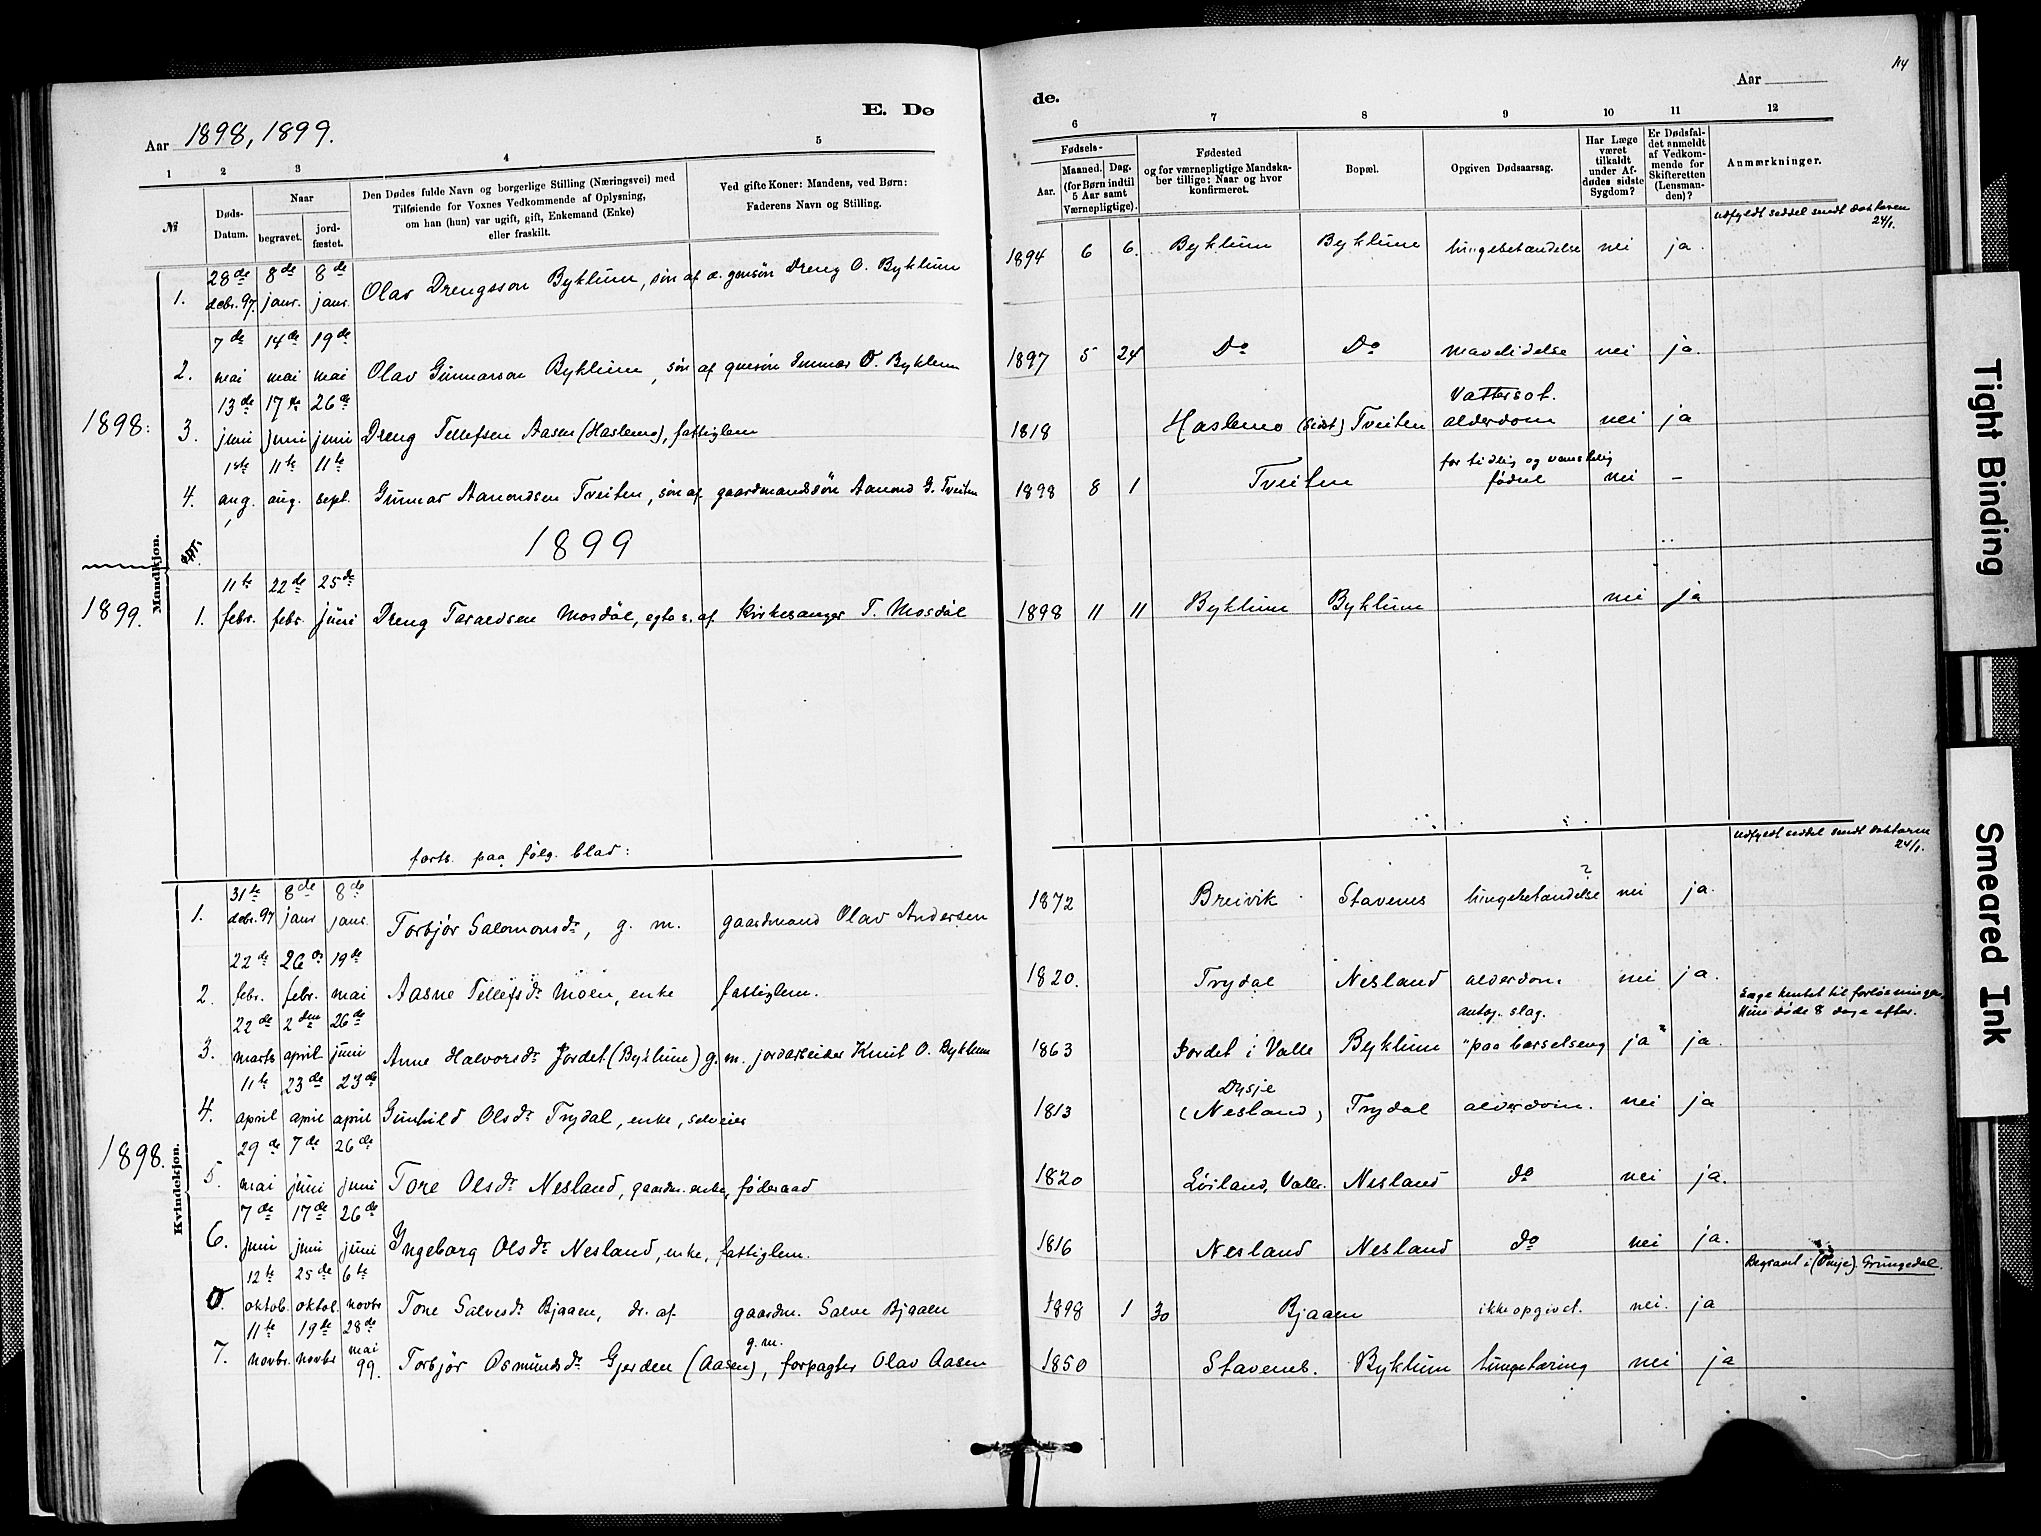 114
E. Dø
de.
Aar 1898, 1899.
Aar
1 2 3 4 5
6 7 8 9 10 11 12
№
Døds-Datum.
Naar
begravet.
jord-fæstet.
Den Dødes fulde Navn og borgerlige Stilling (Næringsvei) med
Tilføiende for Voxnes Vedkommende af Oplysning,
om han (hun) var ugift, gift, Enkemand (Enke)
eller fraskilt.
Ved gifte Koner: Mandens, ved Børn:
Faderens Navn og Stilling.
Fødsels-
Aar. Maaned. Dag.
(for Børn indtil
5 Aar samt
Værnepligtige).
Fødested
og for værnepligtige Mandska-
ber tillige: Naar og hvor
konfirmeret.
Bopæl.
Opgiven Dødsaarsag.
Har Læge
været
tilkaldt
under Af-
dødes sidste
Sygdom?
Er Dødsfal-
det anmeldt
af Vedkom-
mende for
Skifteretten
(Lensman-
den)?
Anmærkninger.
Mandkjøn.
1898:
udfyldt seddel sendt doktoren 24/1.
1. 28de decbr. 97. 8de janr. 8de janr. Olav Drengsson Byklum, søn af d. gmsøn Dreng O. Byklum 1894 6 6. Byklum Byklum lungebetændelse nei ja.
2. 7de mai 14de mai 19de mai Olav Gunnarson Byklum, søn af gmsøn Gunnar O. Byklum 1897 5 24 Do Do mavelidelse nei ja.
3. 13de juni 17de juni 26de juni Dreng Tellefsen Aasen (Haslemo), fattiglem 1818 Haslemo (sidst) Tveiten Vattersot. alderdom nei ja
4. 1ste aug. 11te aug. 11te sept. Gunnar Aamondsen Tveiten, søn af gaardmandssøn Aamond G. Tveiten 1898 8 1 Tveiten for tidlig og vanskelig fødsel nei –
1899
1899.
1. 11te febr. 22de febr. 25de juni Dreng Taraldsen Mosdøl, egte s. af kirkesanger T. Mosdøl 1898 11 11 Byklum Byklum nei ja
forts. paa følg. blad:
Kvindekjøn.
1898.
udfyldt seddel sendt doktoren 24/1.
1. 31te decbr. 97 8de janr 8de janr. Torbjør Salomonsdr, g. m. gaardmand Olav Andersen 1872 Breivik Stavenes lungebetændelse ? nei ja.
2. 22de febr. 26de febr. 19de mai Aasne Tellefsdr Moen, enke fattiglem. 1820. Trydal Nesland alderdom. nei ja.
Læge hentet til forløsningen, Hun døde 8 dage efter.
3. 22de marts 2den april 26de juni Anne Halvorsdr Jordet (Byklum) g. m. jordarbeider Knut O. Byklum 1863 Jordet i Valle Byklum antag. slag. "paa barselseng" ja ja.
4. 11te april 23de april 23de april Gunhild Olsdr Trydal, enke, selveier 1813 Dysje (Nesland) Trydal alderdom. nei ja
5. 29de mai 7de juni 26de juni Tore Olsdr Nesland, gaardm. enke, føderaad 1820 Løiland, Valle. Nesland do nei ja.
6. 7de juni 17de juni 26de juni Yngeborg Olsdr Nesland, enke, fattiglem. 1816 Nesland Nesland do nei ja.
Begravet i (Vinje) Grungedal.
0. 12te oktob. 25de oktob. 6te novbr Tone Salvesdr Bjaaen, dr. af gaardm. Salve Bjaaen 1898 1 30 Bjaaen ikke opgivet. nei. ja
7. 11te novbr. 19de novbr 28de mai 99. Torbjør Osmundsdr Gjerden (Aasen), g. m. forpagter Olav Aasen 1850 Stavenes. Byklum lungetæring nei ja
Tight Binding
Smeared Ink